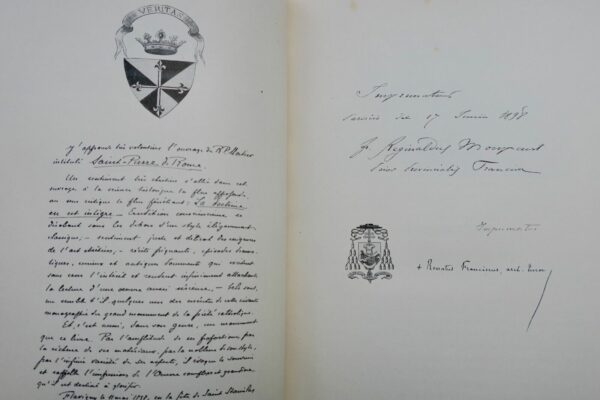 VERITAS
J'approuve très volontiers l'ouvrage du R.P. Mortier
intitulé Saint-Pierre de Rome.
Un sentiment très chrétien s'allie dans cet
ouvrage à la science historique la plus approfondie
au sens critique le plus pénétrant: La doctrine
en est intègre. Érudition consciencieuse se
dérobant sous les dehors d'un style élégamment
classique, - sentiment juste et délicat des exigences
de l'art chrétien, - récits piquants, épisodes drama-
tiques, curieux et antiques documents qui
sans cesse l'intérêt et rendent infiniment attachante
la lecture d'une oeuvre aussi sérieuse, - tels sont,
me semble-t-il quelques uns des mérites de cette
monographie du grand monument de la piété catholique.
Et, c'est aussi, dans son genre, un monument
que ce livre. Par l'amplitude de ses proportions par
la richesse de ses matériaux, par la noblesse de son style,
par l'infinie variété de ses aspects, il évoque le souvenir
et rappelle l'impression de l'Oeuvre complexe et grandiose
qu'il est destiné à glorifier.
Flavigny le mai 1898, en la fête de Saint Stanislas
Imprimatur
die 17 1898
Fr. Reginaldus Monpeurt
Prior Provincialis Franciae
Imprimatur
+ Renatus Franciscus, arch. Turon.